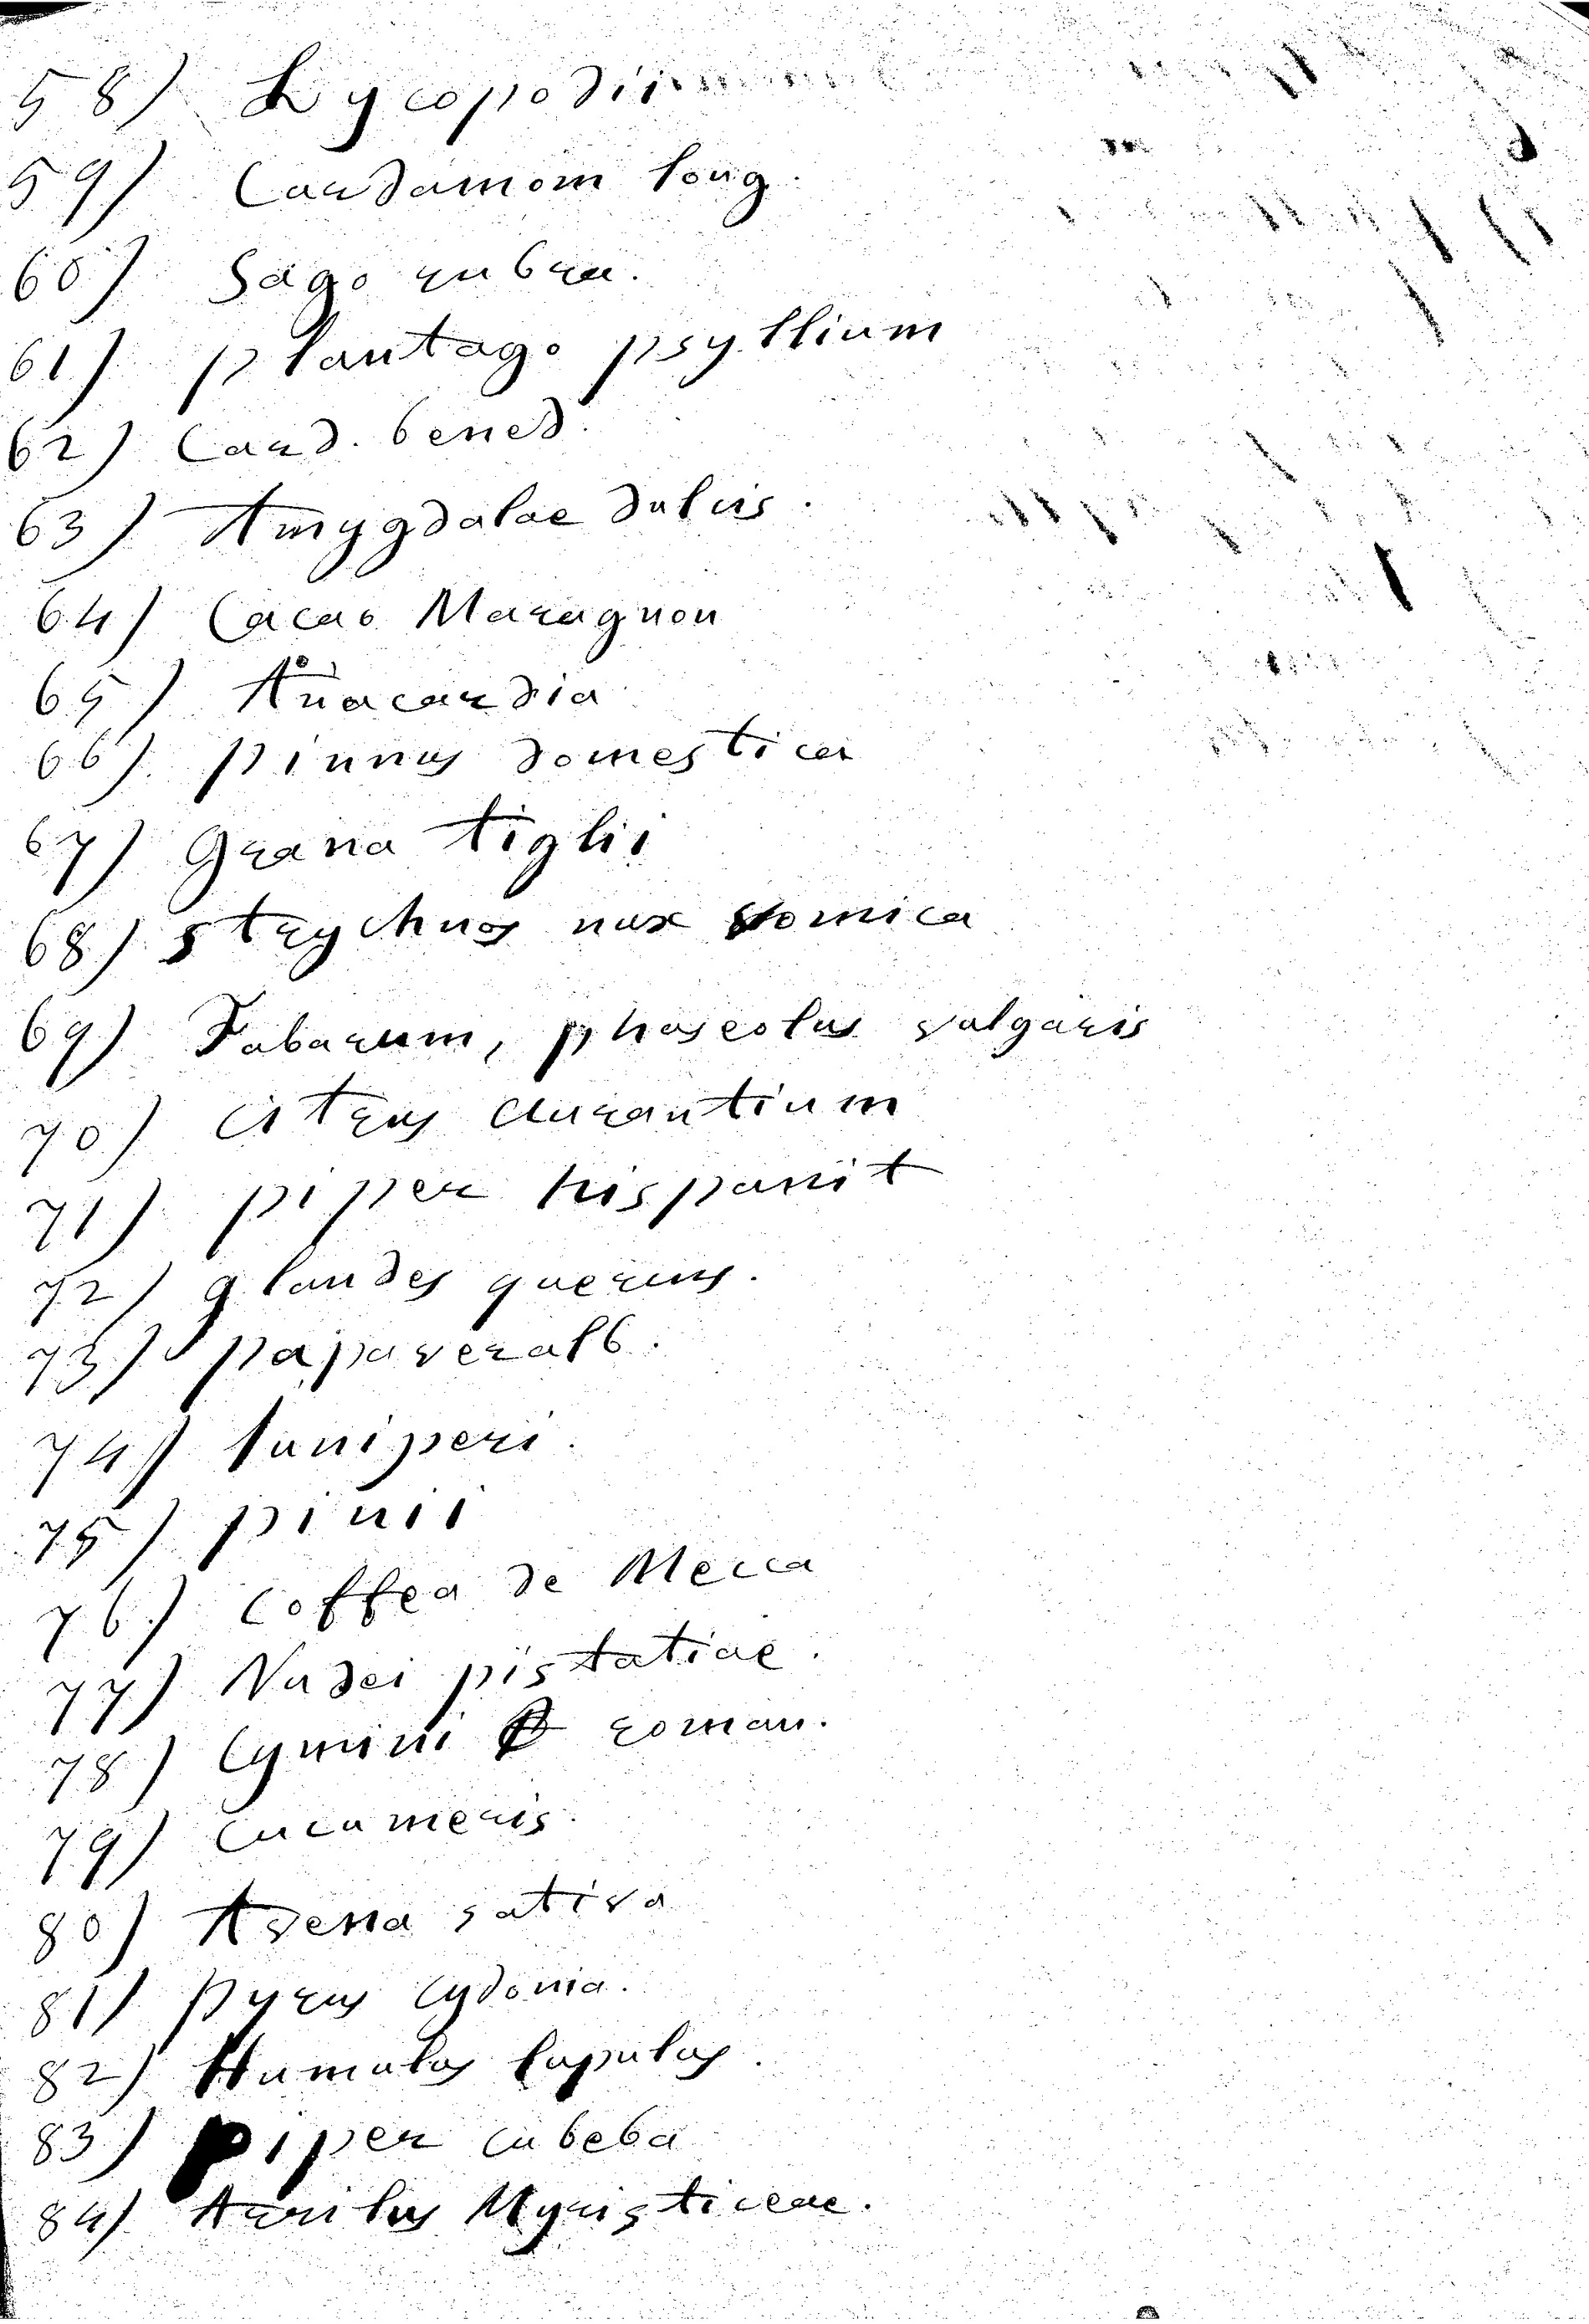 58) Lycopodii
59) Cardamom long.
60) Sago rubra.
61) plantago psyllium
62) Card. bened.
63) Amygdalae dulcis.
64) Cacao Maragnon
65) Anacardia
66) pinnus domestica
67) grana tiglii
68) strychnos nux vomica
69) Fabarum, phaseolus vulgaris
70) citrus aurantium
71) piper hispanit
72) glandes quercus.
73) papaver alb.
74) Juniperi.
75) pinii
76) Coffea de Mecca
77) Nudei pistatiae.
78) Cymini roman.
79) Cucumeris.
80) Avena sativa
81) pyrus cydonia.
82) Humulus lupulus.
83) piper cubeba
84) Arrilus Myristiceae.